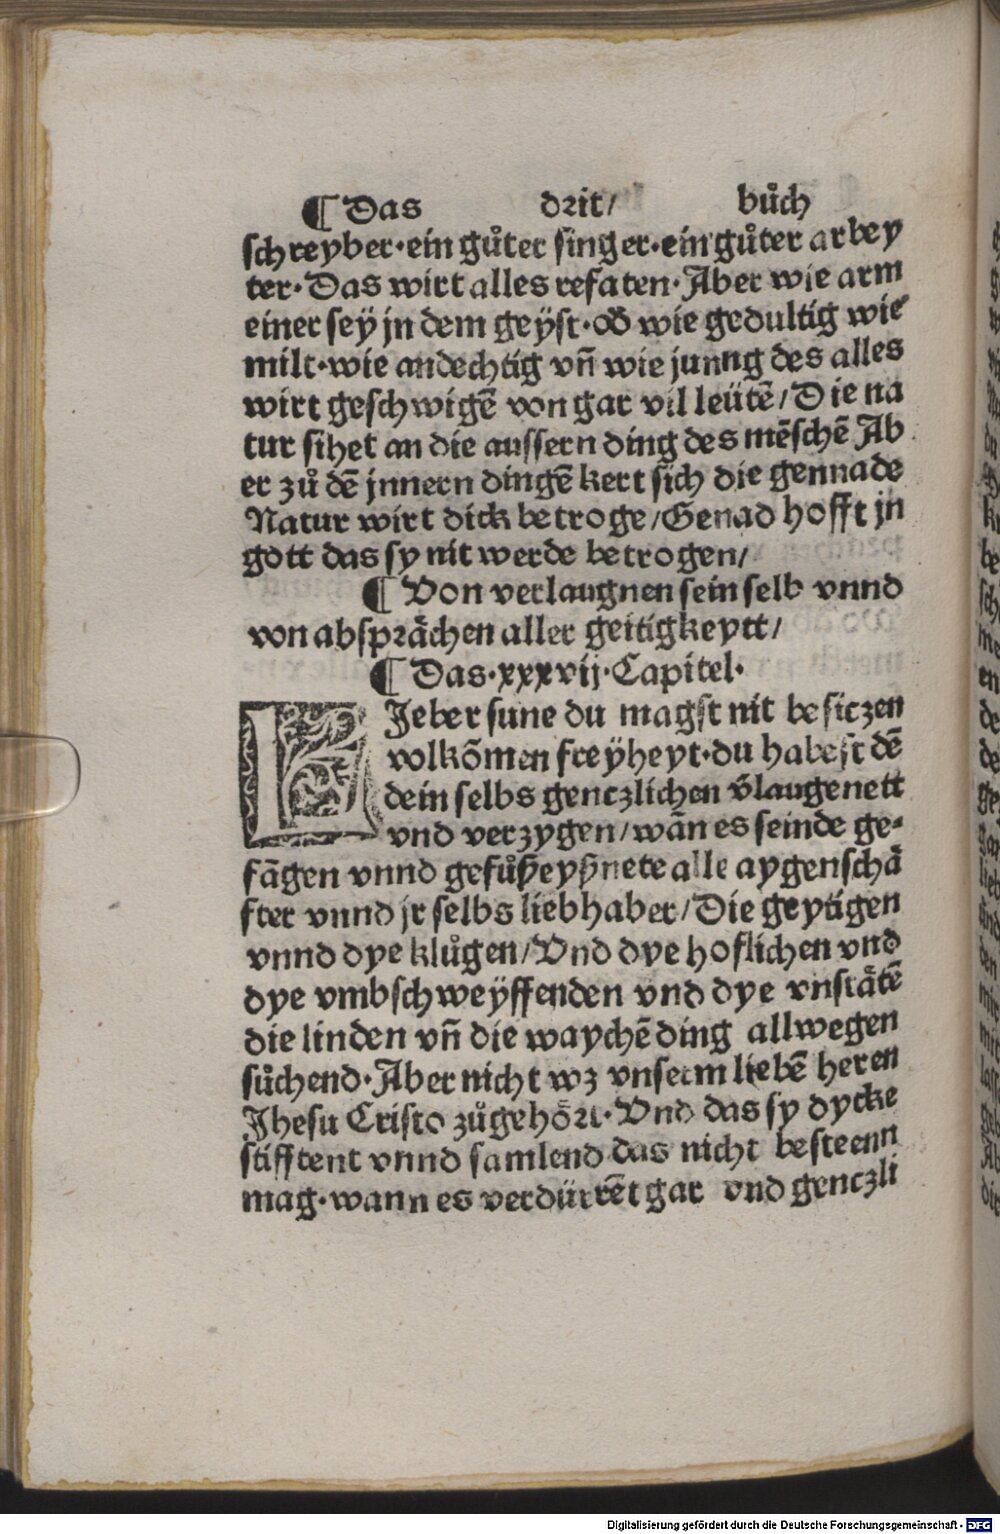 ¶ Das drit/ bůch
schreyber·ein gůter singer·ein gůter arbey
ter·Das wirt alles refaten·Aber wie arm
einer sey̆ jn dem gey̆st·od̄ wie gedultig wie
milt·wie andechtig vn̄ wie junng des alles
wirt geschwigē von gar vil leütē/Die na
tur sihet an die aussern ding des mēschē Ab
er zů dē jnnern dingē kert sich die gennade
Natur wirt dick betroge/Genad hofft jn
gott das sy nit werde betrogen/
¶ Von verlaugnen sein selb vnnd
von absprächen aller geitigkeytt/
¶ Das·xxxvij·Capitel·
LJeber sune du magst nit besiczen
volkōmen frey̆heyt·du habest dē
dein selbs genczlichen v̄laugenett
vnd verzygen/wān es seinde ge⸗
fāgen vnnd gefůßeyßnete alle aygenschā
fter vnnd jr selbs liebhaber/Die geytigen
vnnd dye klůgen/Vnd dye hoflichen vnd
dye vmbschwey̆ffenden vnd dye vnstätē
die linden vn̄ die waychē ding allwegen
sůchend·Aber nicht wz vnserm liebē heren
Jhesu Cristo zůgehört·Vnd das sy dycke
stifftent vnnd samlend das nicht besteenn
mag·wann es verdürrēt gar vnd genczli
Digitalisierung gefördert durch die Deutsche Forschungsgemeinschaft - DFG